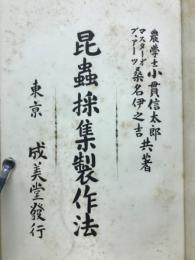 農學士小貫信太郎
マスターオブ、アーツ桑名伊之吉
共著
昆蟲採集製作法
東京 成美堂發行